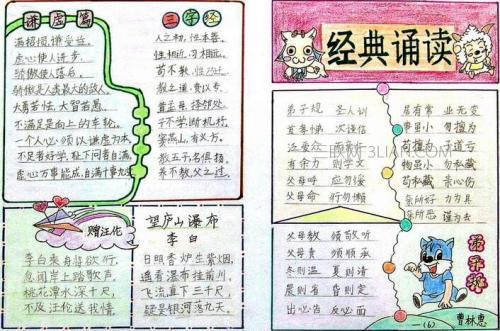 谦虚篇
满招损,谦受益。
虚心使人进步,
骄傲使人落后。
骄傲是人类最大的敌人。
大勇若怯,大智若愚。
不满足是向上的车轮。
一个人必须以谦虚为本。
不足者好学,耻下问者自满。
虚心万事能成,自满十事九空。
三字经
人之初,性本善。
性相近,习相远。
苟不教,性乃迁。
教之道,贵以专。
昔孟母,择邻处。
子不学,断机杼。
窦燕山,有义方。
教五子,名俱扬。
养不教,父之过。
赠汪伦
李白乘舟将欲行,
忽闻岸上踏歌声。
桃花潭水深千尺,
不及汪伦送我情。
望庐山瀑布
李白
日照香炉生紫烟,
遥看瀑布挂前川。
飞流直下三千尺,
疑是银河落九天。
经典诵读
弟子规 圣人训
首孝悌 次谨信
泛爱众 而亲仁
有余力 则学文
父母呼 应勿缓
父母命 行勿懒
居有常 业无变
事虽小 勿擅为
苟擅为 子道亏
物虽小 勿私藏
苟私藏 亲心伤
亲所好 力为具
亲所恶 谨为去
父母教 须敬听
父母责 须顺承
冬则温 夏则清
晨则省 昏则定
出必告 反必面
弟子规
一(6) 曹林惠
3LIAN.COM